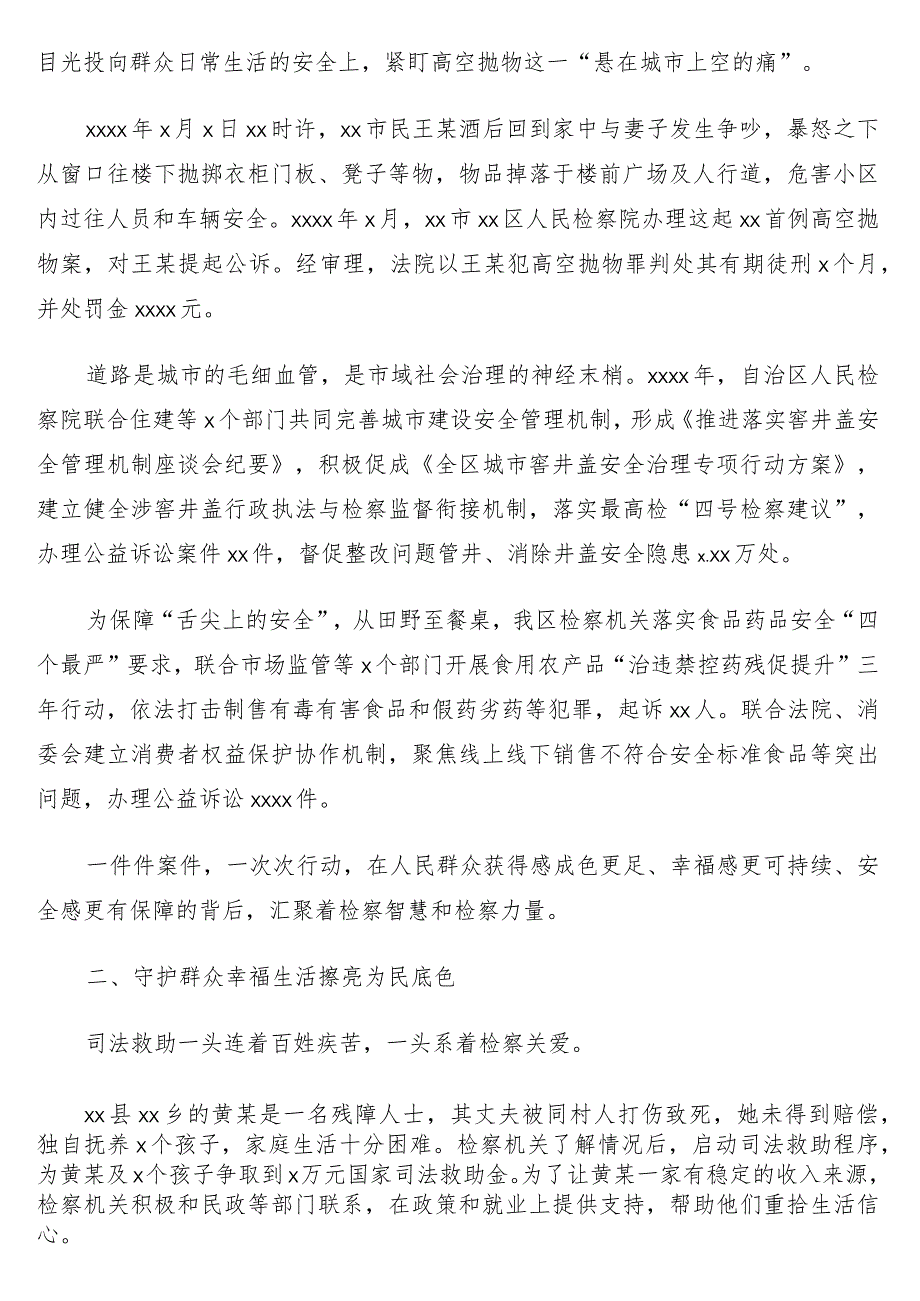 目光投向群众日常生活的安全上，紧盯高空抛物这一“悬在城市上空的痛”。
xxxx年x月x日xx时许，xx市民王某酒后回到家中与妻子发生争吵，暴怒之下
从窗口往楼下抛掷衣柜门板、凳子等物，物品掉落于楼前广场及人行道，危害小区
内过往人员和车辆安全。xxxx年x月，xx市xx区人民检察院办理这起xx首例高空抛
物案，对王某提起公诉。经审理，法院以王某犯高空抛物罪判处其有期徒刑x个月，
并处罚金xxxx元。
道路是城市的毛细血管，是市域社会治理的神经末梢。xxxx年，自治区人民检
察院联合住建等x个部门共同完善城市建设安全管理机制，形成《推进落实窨井盖安
全管理机制座谈会纪要》，积极促成《全区城市窨井盖安全治理专项行动方案》，
建立健全涉窨井盖行政执法与检察监督衔接机制，落实最高检“四号检察建议”，
办理公益诉讼案件xx件，督促整改问题管井、消除井盖安全隐患x.xx万处。
为保障“舌尖上的安全”，从田野至餐桌，我区检察机关落实食品药品安全“四
个最严”要求，联合市场监管等x个部门开展食用农产品“治违禁控药残促提升”三
年行动，依法打击制售有毒有害食品和假药劣药等犯罪，起诉xx人。联合法院、消
委会建立消费者权益保护协作机制，聚焦线上线下销售不符合安全标准食品等突出
问题，办理公益诉讼xxxx件。
一件件案件，一次次行动，在人民群众获得感成色更足、幸福感更可持续、安
全感更有保障的背后，汇聚着检察智慧和检察力量。
二、守护群众幸福生活擦亮为民底色
司法救助一头连着百姓疾苦，一头系着检察关爱。
xx县xx乡的黄某是一名残障人士，其丈夫被同村人打伤致死，她未得到赔偿，
独自抚养x个孩子，家庭生活十分困难。检察机关了解情况后，启动司法救助程序，
为黄某及x个孩子争取到x万元国家司法救助金。为了让黄某一家有稳定的收入来源，
检察机关积极和民政等部门联系，在政策和就业上提供支持，帮助他们重拾生活信
心。